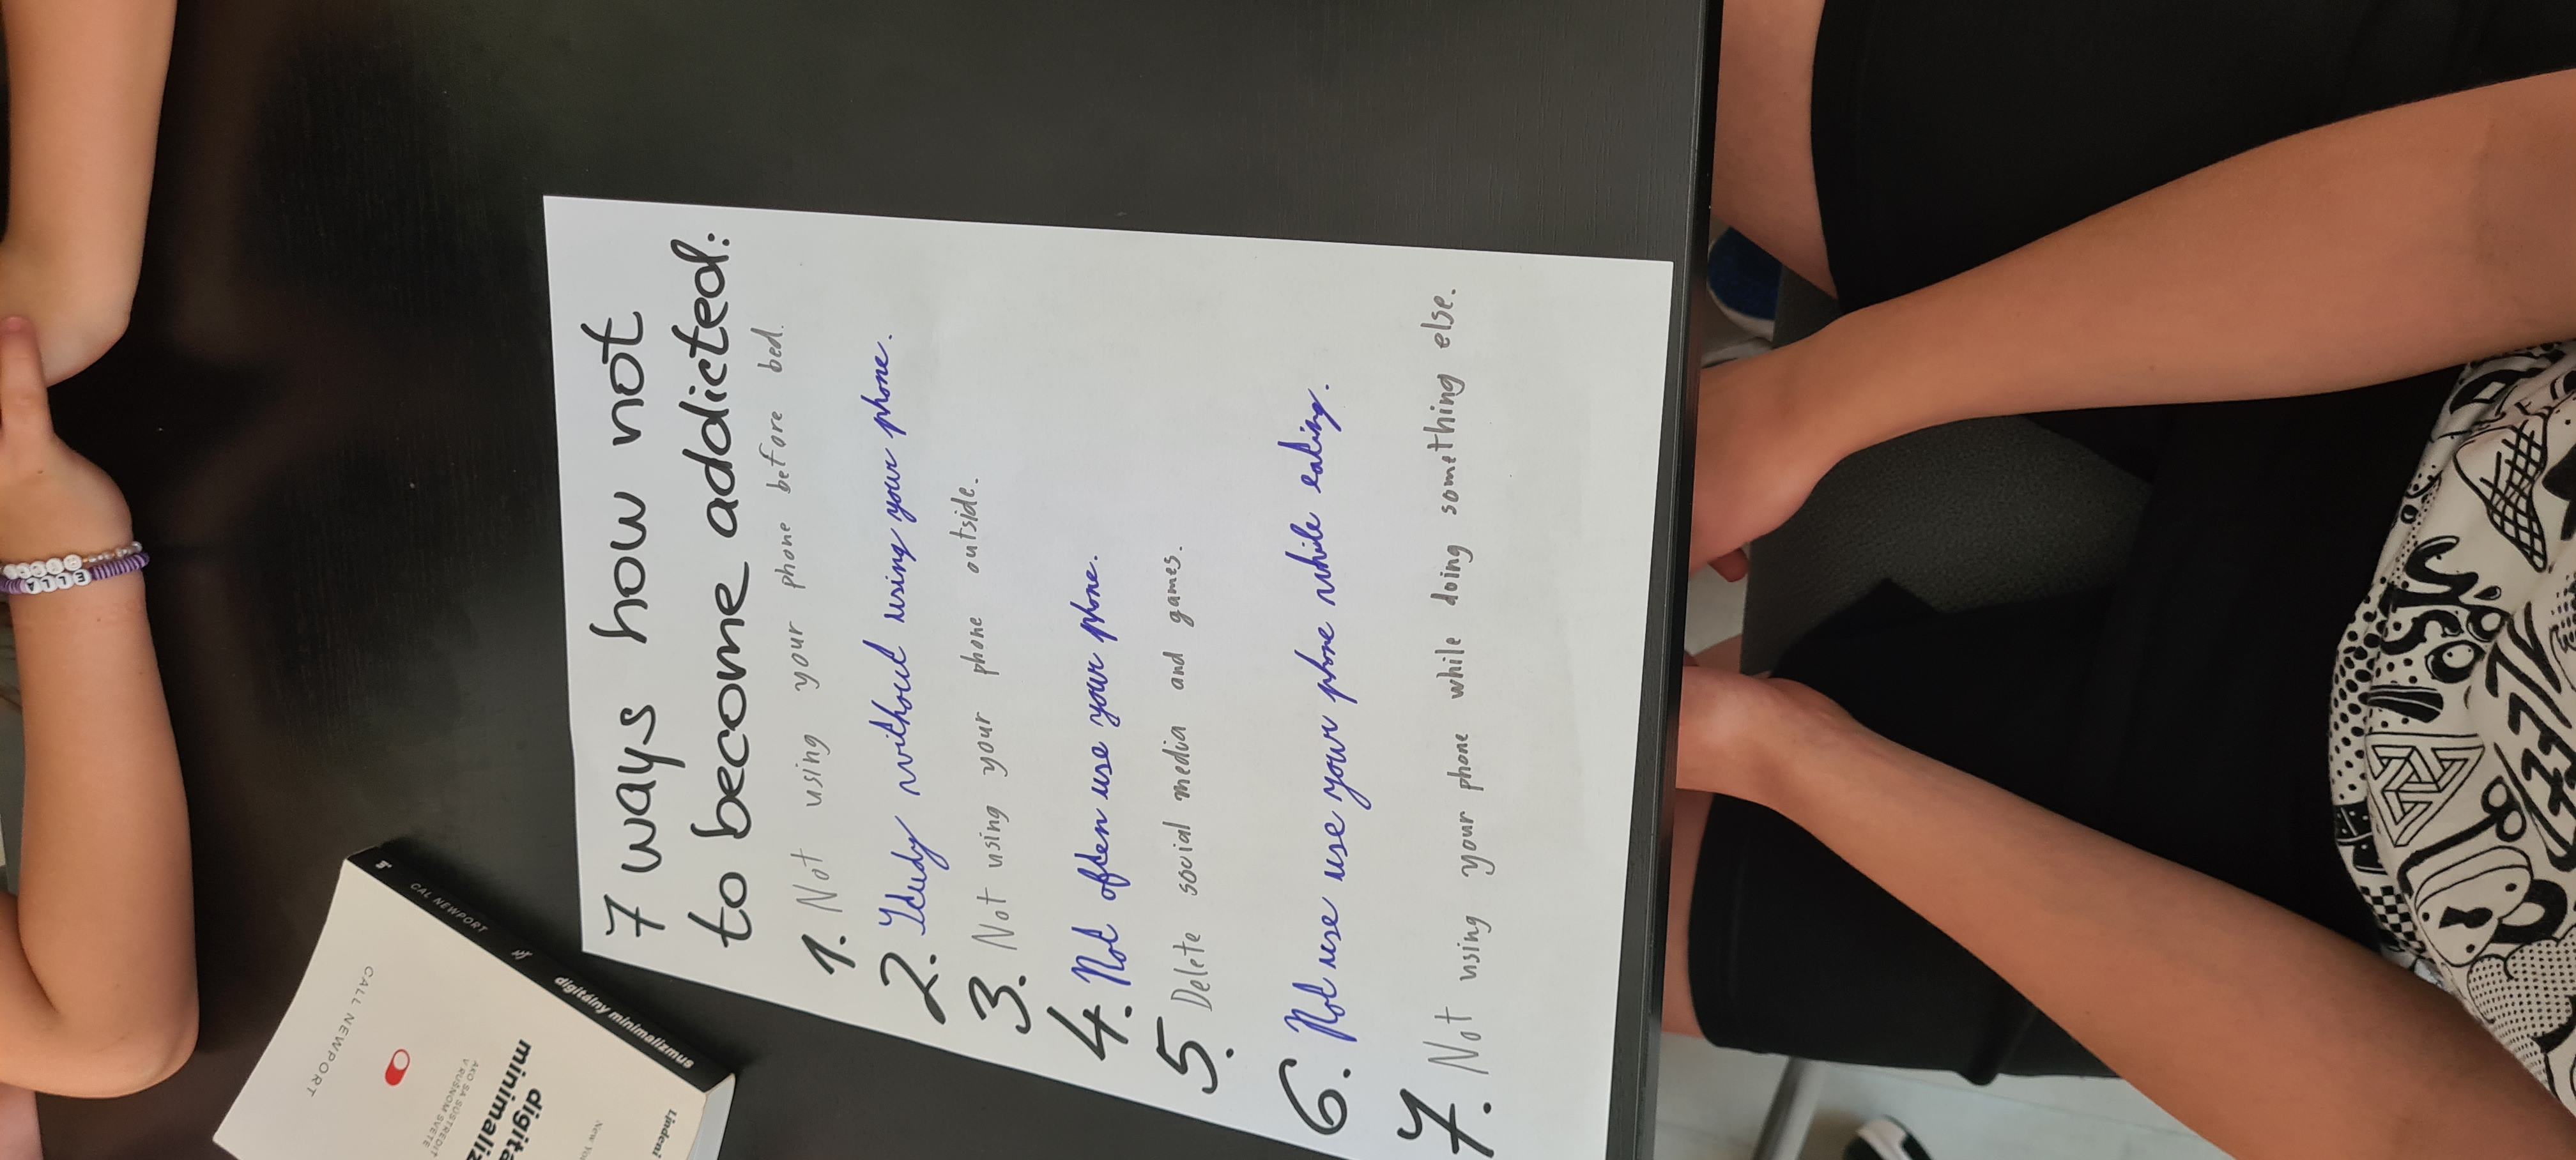 7 ways how not
to become addicted:
1. Not using your phone before bed.
2. Study without using your phone.
3. Not using your phone outside.
4. Not often use your phone.
5. Delete social media and games.
6. Not use use your phone while eating.
7. Not using your phone while doing something else.
CAL NEWPORT
digitálny minimalizmus
CALL NEWPORT
AKO SA SÚSTREDIŤ
V RUŠNOM SVETE
Lindeni
ELLA